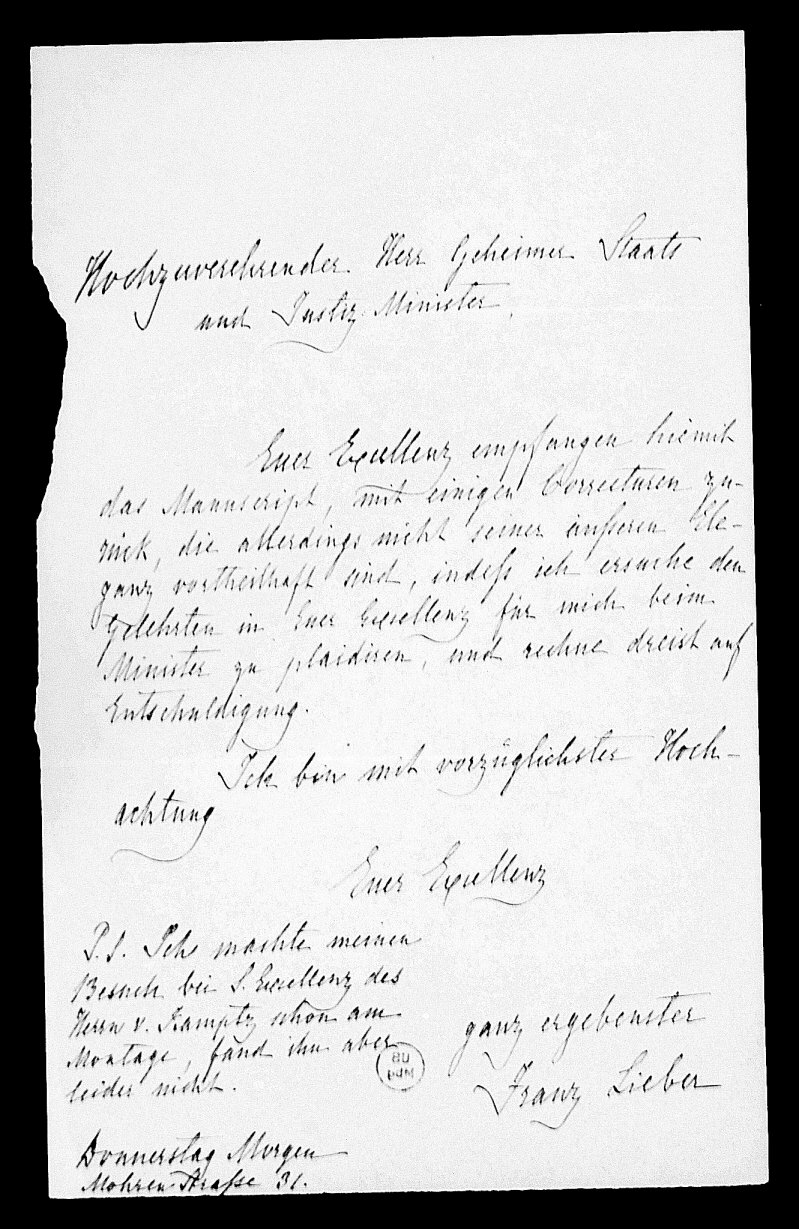 Hochzuverehrender Herr Geheimer Staats
und Justiz Minister,
Euer Excellenz empfangen hiemit
das Manuscript, mit einigen Correcturen zu-
rück, die allerdings nicht seiner äußeren Ele-
ganz vortheilhaft sind, indeß ich ersuche den
Gelehrten in Euer Excellenz für mich beim
Minister zu plaidiren, und rechne dreist auf
Entschuldigung.
Ich bin mit vorzüglichster Hoch-
achtung
Euer Excellenz
ganz ergebenster
Franz Lieber
P.S. Ich machte meinen
Besuch bei S. Excellenz des
Herrn v. Kamptz schon am
Montage, fand ihn aber
leider nicht.
Donnerstag Morgen
Mohren Straße 31.